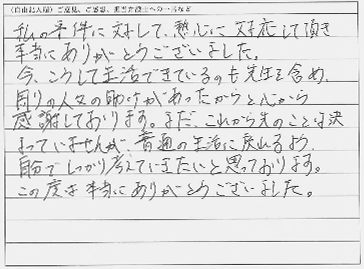 (自由記入欄) ご意見、ご感想、担当弁護士への一言など
私の事件に対して、懇心に対応して頂き
本当にありがとうございました。
今、こうして生活できているのも先生を含め、
周りの人々の助けがあったからと心から
感謝しております。まだ、これから先のことは決
まっていませんが、普通の生活に戻れるよう、
自分でしっかり考えていきたいと思っております。
この度は本当にありがとうございました。